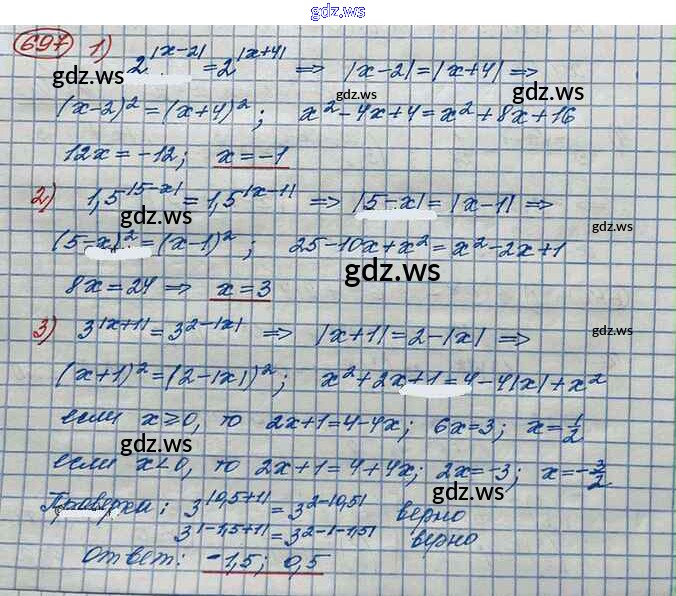 gdz.ws
697 1) 2^|x-2| = 2^|x+4| ⇒ |x-2| = |x+4| ⇒
gdz.ws gdz.ws gdz.ws
(x-2)² = (x+4)² ; x² - 4x + 4 = x² + 8x + 16
12x = -12; x = -1
2) 1,5^|5-x| = 1,5^|x-1| ⇒ |5-x| = |x-1| ⇒
gdz.ws gdz.ws
(5-x)² = (x-1)² ; 25 - 10x + x² = x² - 2x + 1
8x = 24 ⇒ x = 3
gdz.ws
3) 3^|x+1| = 3^2-|x| ⇒ |x+1| = 2-|x| ⇒
gdz.ws
(x+1)² = (2-|x|)² ; x² + 2x + 1 = 4 - 4|x| + x²
если x ≥ 0, то 2x+1 = 4-4x; 6x = 3; x = 1/2
gdz.ws gdz.ws
если x < 0, то 2x+1 = 4+4x; 2x = -3; x = -3/2
gdz.ws
Проверка: 3^|0,5+1| = 3^2-|0,5| верно
3^|-1,5+1| = 3^2-|-1,5| верно
Ответ: -1,5; 0,5